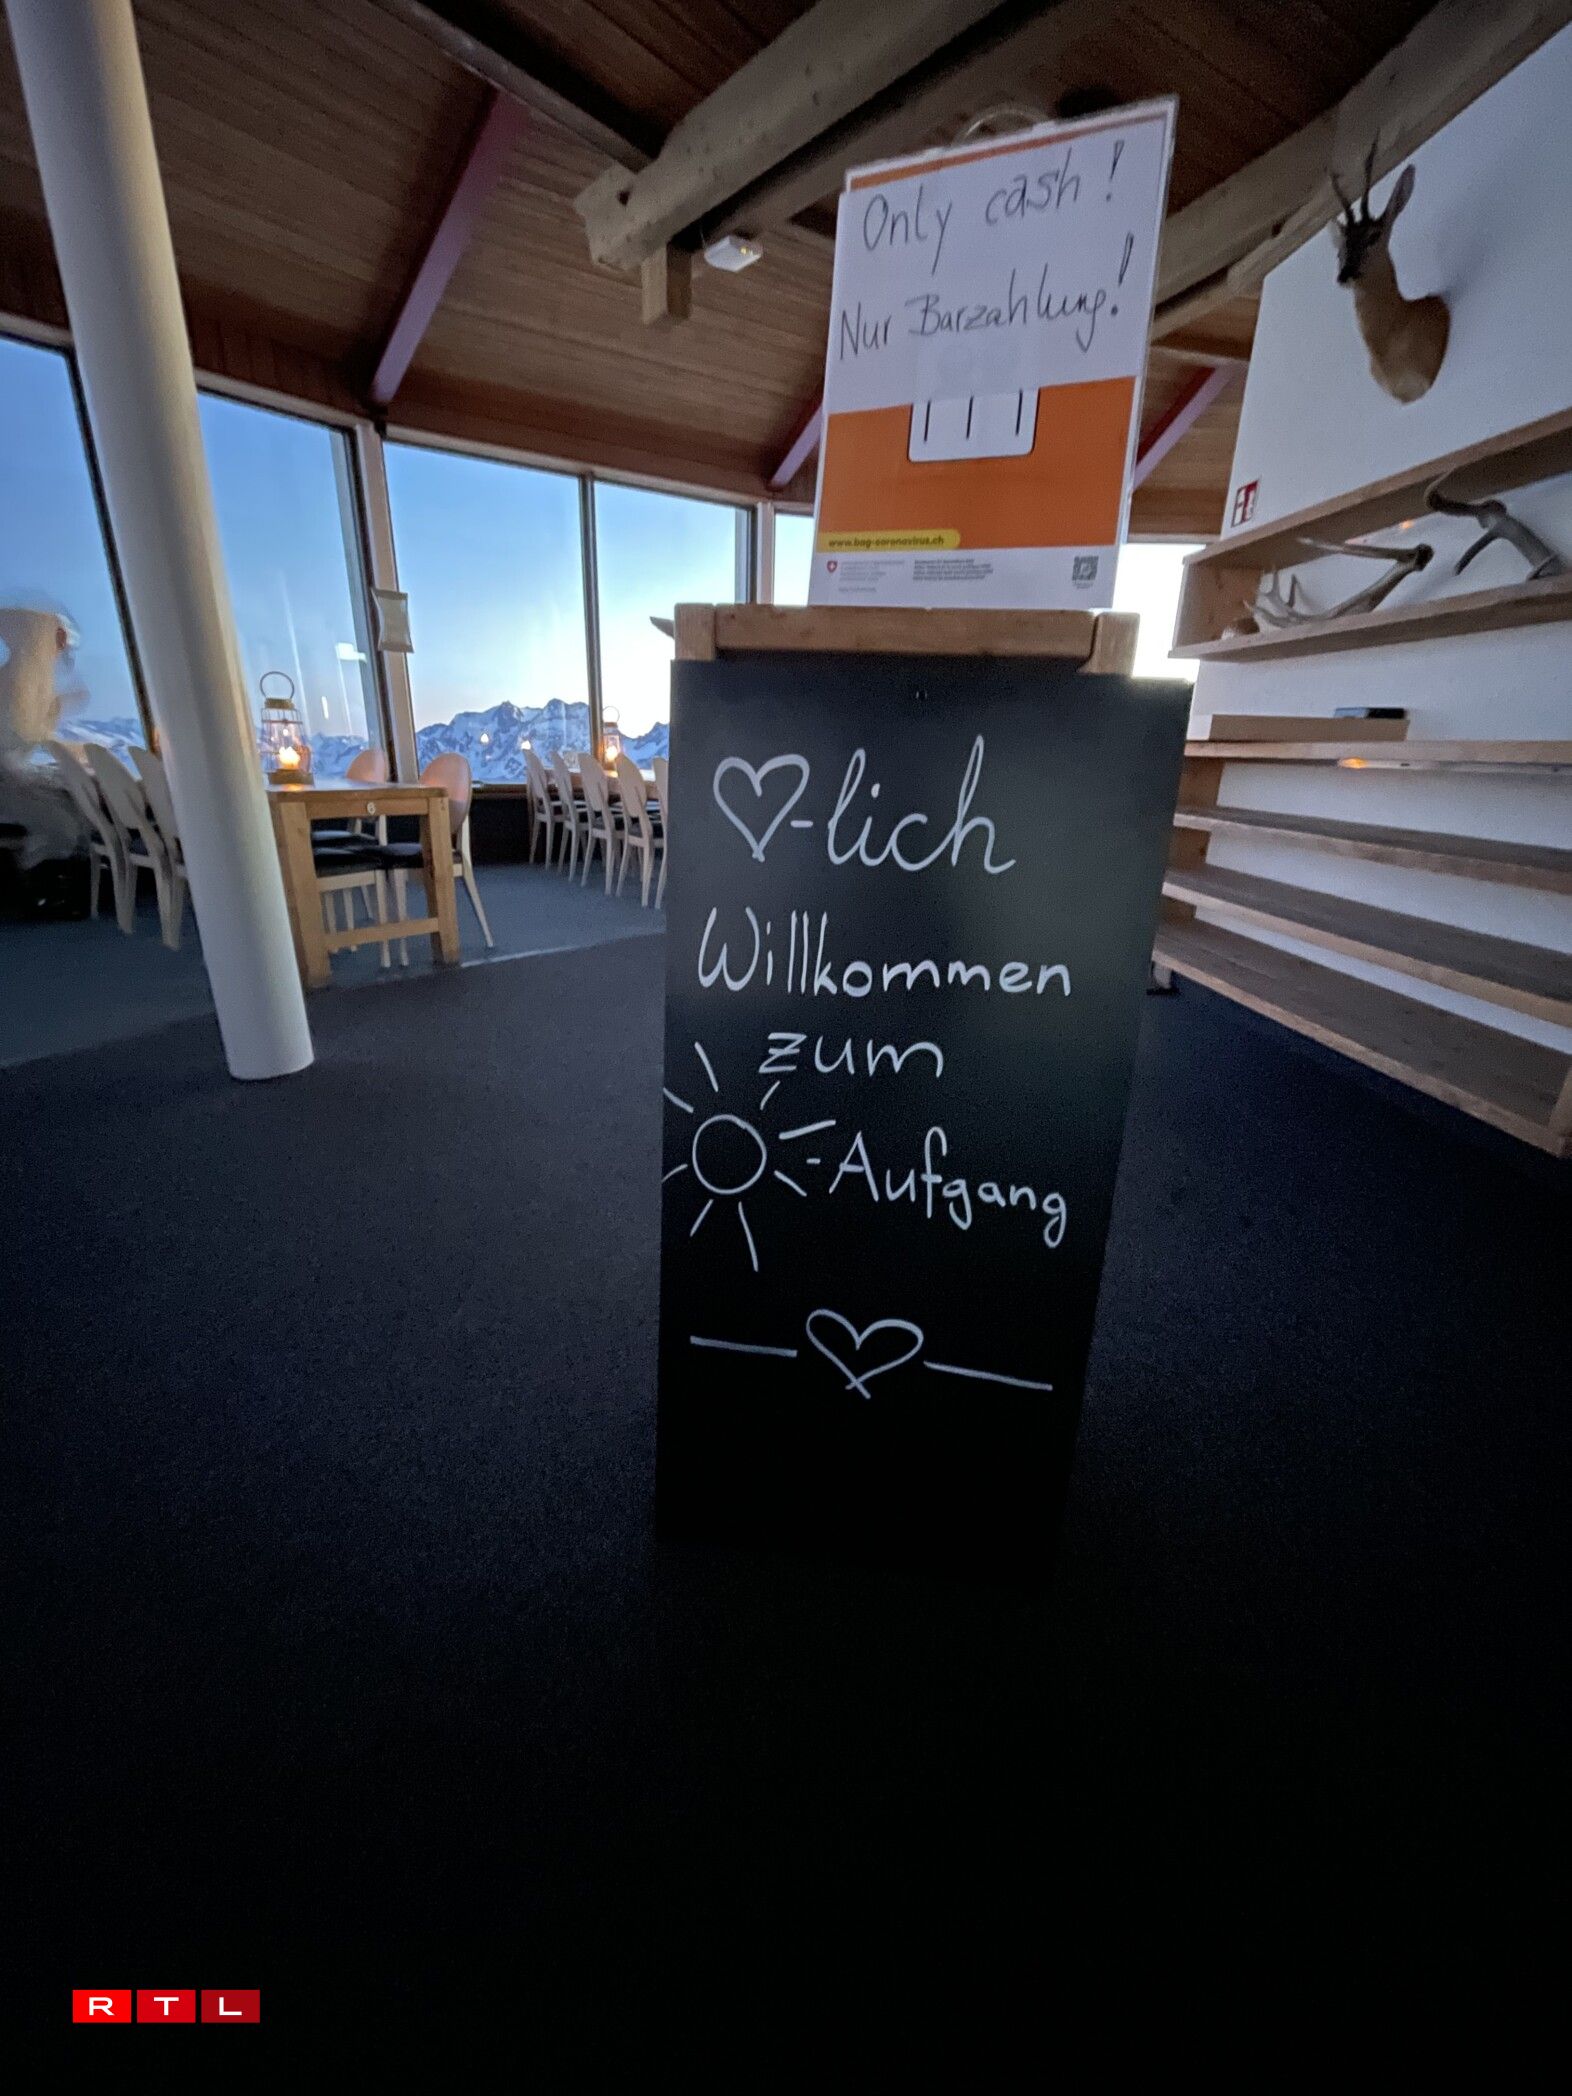 Only cash!
Nur Barzahlung!
www.bag-coronavirus.ch
-lich
Willkommen
zum
-Aufgang
6
RTL